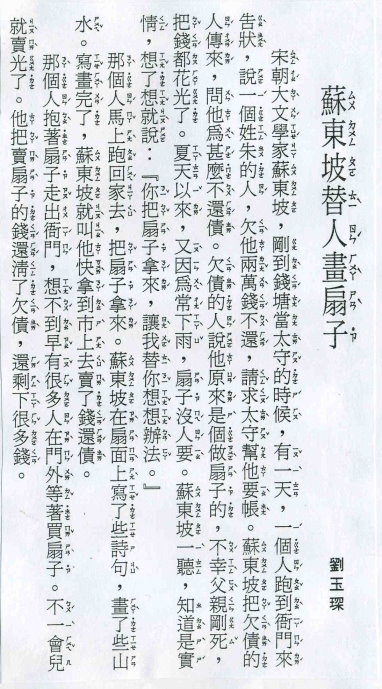 蘇東坡替人畫扇子
劉玉琛
宋朝大文學家蘇東坡，剛到錢塘當太守的時候，有一天，一個人跑到衙門來
告狀，說一個姓朱的人，欠他兩萬錢不還，請求太守幫他要帳。蘇東坡把欠債的
人傳來，問他為甚麼不還債。欠債的人說他原來是個做扇子的，不幸父親剛死，
把錢都花光了。夏天以來，又因為常下雨，扇子沒人要。蘇東坡一聽，知道是實
情，想了想就說：『你把扇子拿來，讓我替你想想辦法。』
那個人馬上跑回家去，把扇子拿來。蘇東坡在扇面上寫了些詩句，畫了些山
水。寫畫完了，蘇東坡就叫他快拿到市上去賣了錢還債。
那個人抱著扇子走出衙門，想不到早有很多人在門外等著買扇子。不一會兒
就賣光了。他把賣扇子的錢還清了欠債，還剩下很多錢。